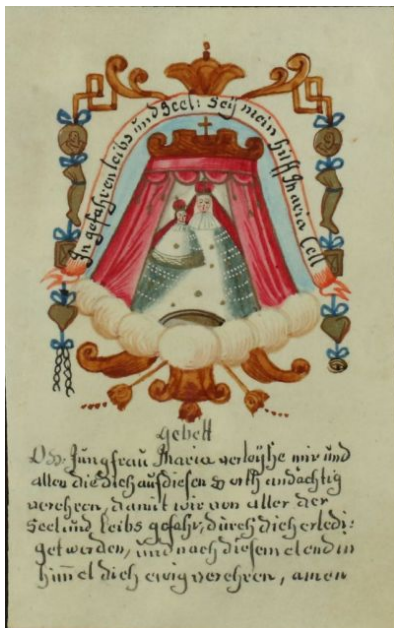 In gefahren leibs und Seel: Seÿ mein hülff Maria Cell
gebett
O Jungfrau Maria verlÿhe mir und
allen die dich auf diesen orth andächtig
verehren, damit wir von aller der
Seel und leibs gefahr, durch dich erledi:
get werden, und nach diesem elend in
him̄el dich ewig verehren, amen